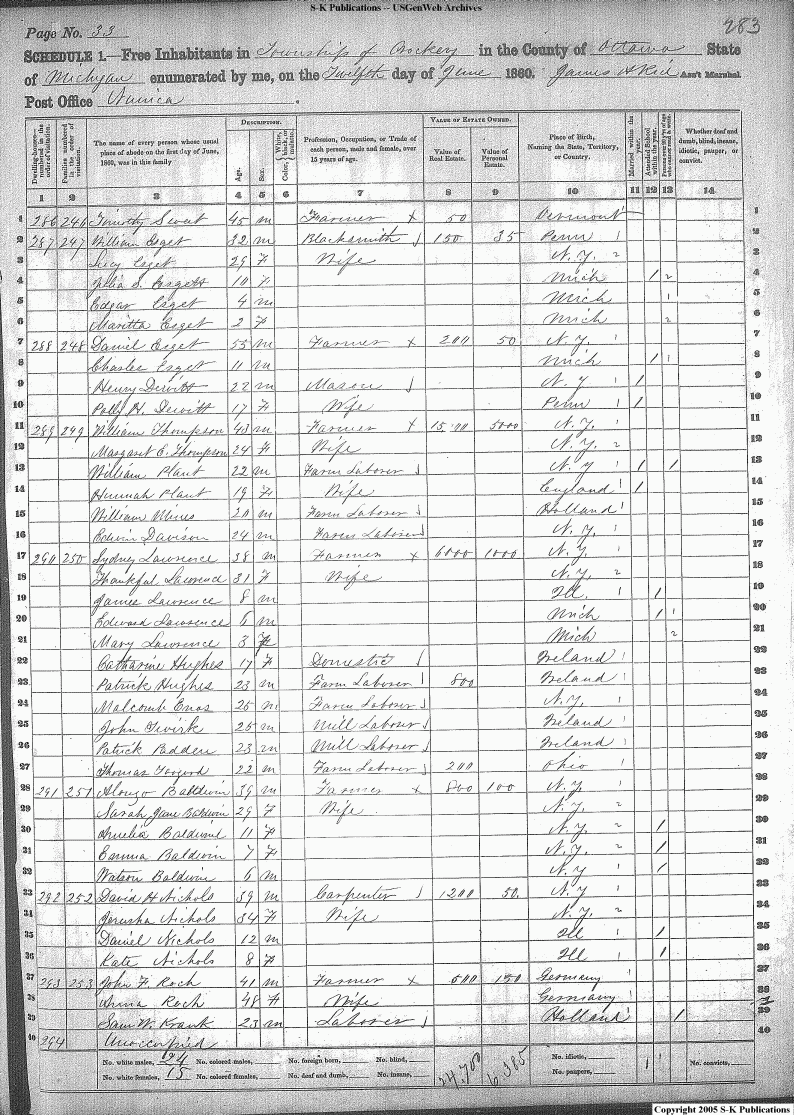 S-K Publications -- USGenWeb Archives
283
Page No. 33
SCHEDULE 1.—Free Inhabitants in Township of Crockery in the County of Ottawa State
of Michigan enumerated by me, on the Twelfth day of June 1860. James Ass't Marshal.
Post Office Nunica
Dwelling-houses numbered in the order of visitation. Families numbered in the order of visitation. The name of every person whose usual place of abode on the first day of June, 1860, was in this family DESCRIPTION. Age. Sex. Color, White, black, or mulatto. Profession, Occupation, or Trade of each person, male and female, over 15 years of age. VALUE OF ESTATE OWNED. Value of Real Estate. Value of Personal Estate. Place of Birth, Naming the State, Territory, or Country. Married within the year. Attended School within the year. Persons over 20 y'rs of age who cannot read & write. Whether deaf and dumb, blind, insane, idiotic, pauper, or convict.
1 2 3 4 5 6 7 8 9 10 11 12 13 14
1 286 246 Timothy Sweat 45 m Farmer x 50 Vermont 1
2 287 247 William Esget 32 m Blacksmith 150 35 Penn 1 2
3 Lucy Esget 29 F Wife N.Y. 2 3
4 Julia S. Esgett 10 F Mich 1 2 4
5 Edgar Esget 4 m Mich 1 5
6 Maritta Esget 2 F Mich 2 6
7 288 248 Daniel Esget 55 m Farmer x 200 50 N.Y. 1 7
8 Charles Esget 11 m Mich 1 1 8
9 Henry Dewitt 22 m Mason N.Y 1 1 9
10 Polly H. Dewitt 17 F Wife Penn 1 10
11 289 249 William Thompson 43 m Farmer x 15,00 5000 N.Y. 1 11
12 Margaret E. Thompson 24 F Wife N.Y. 2 12
13 William Plant 22 m Farm Laborer N.Y 1 1 1 13
14 Hannah Plant 19 F Wife England 1 1 14
15 William Mines 20 m Farm Laborer Holland 1 15
16 Edwin Davison 24 m Farm Laborer N.Y. 1 16
17 290 250 Sydney Lawrence 38 m Farmer x 6000 1000 N.Y. 1 17
18 Thankful Lawrence 31 F Wife N.Y. 2 18
19 James Lawrence 8 m Ill. 1 1 19
20 Edward Lawrence 6 m Mich 1 1 20
21 Mary Lawrence 3 F Mich 2 21
22 Catharine Hughes 17 F Domestic Ireland 1 22
23 Patrick Hughes 23 m Farm Laborer 800 Ireland 1 23
24 Malcomb Enos 25 m Farm Laborer N.Y. 1 24
25 John 25 m Mill Laborer Ireland 1 25
26 Patrick Badden 23 m Mill Laborer Ireland 1 26
27 Thomas 22 m Farm Laborer 200 Ohio 1 27
28 291 251 Alonzo Baldwin 39 m Farmer x 800 100 N.Y 1 28
29 Sarah Jane Baldwin 29 F Wife N.Y. 2 29
30 Amelia Baldwin 11 F N.Y. 2 1 30
31 Emma Baldwin 7 F N.Y. 2 1 31
32 Watson Baldwin 6 m N.Y 1 1 32
33 292 252 David H Nichols 39 m Carpenter 1200 50 N.Y 1 33
34 Jerusha Nichols 34 F Wife N.Y. 2 34
35 Daniel Nichols 12 m Ill 1 35
36 Kate Nichols 8 F Ill 1 36
37 293 253 John F. Roch 41 m Farmer x 500 150 Germany 37
38 Roch 48 F Wife Germany 38
39 Sam W. Krank 23 m Laborer Holland 1 1 39
40 294 Unoccupied 40
No. white males, 24 No. colored males, No. foreign born, No. blind, 24,700 6,385 No. idiotic, 1 1 No. convicts,
No. white females, 15 No. colored females, No. deaf and dumb, No. insane, No. paupers,
Copyright 2005 S-K Publications